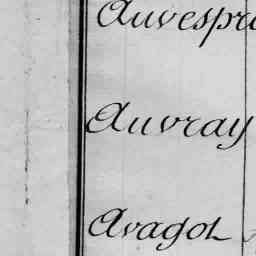 Auvespre
Auvray
Avagot